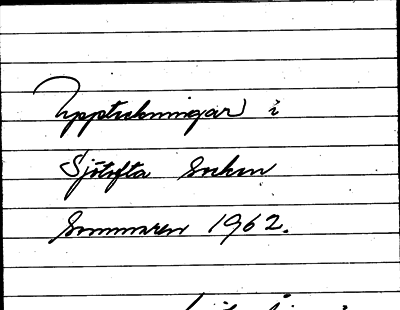 Uppteckningar i
Sjötofta socken
Sommaren 1962.